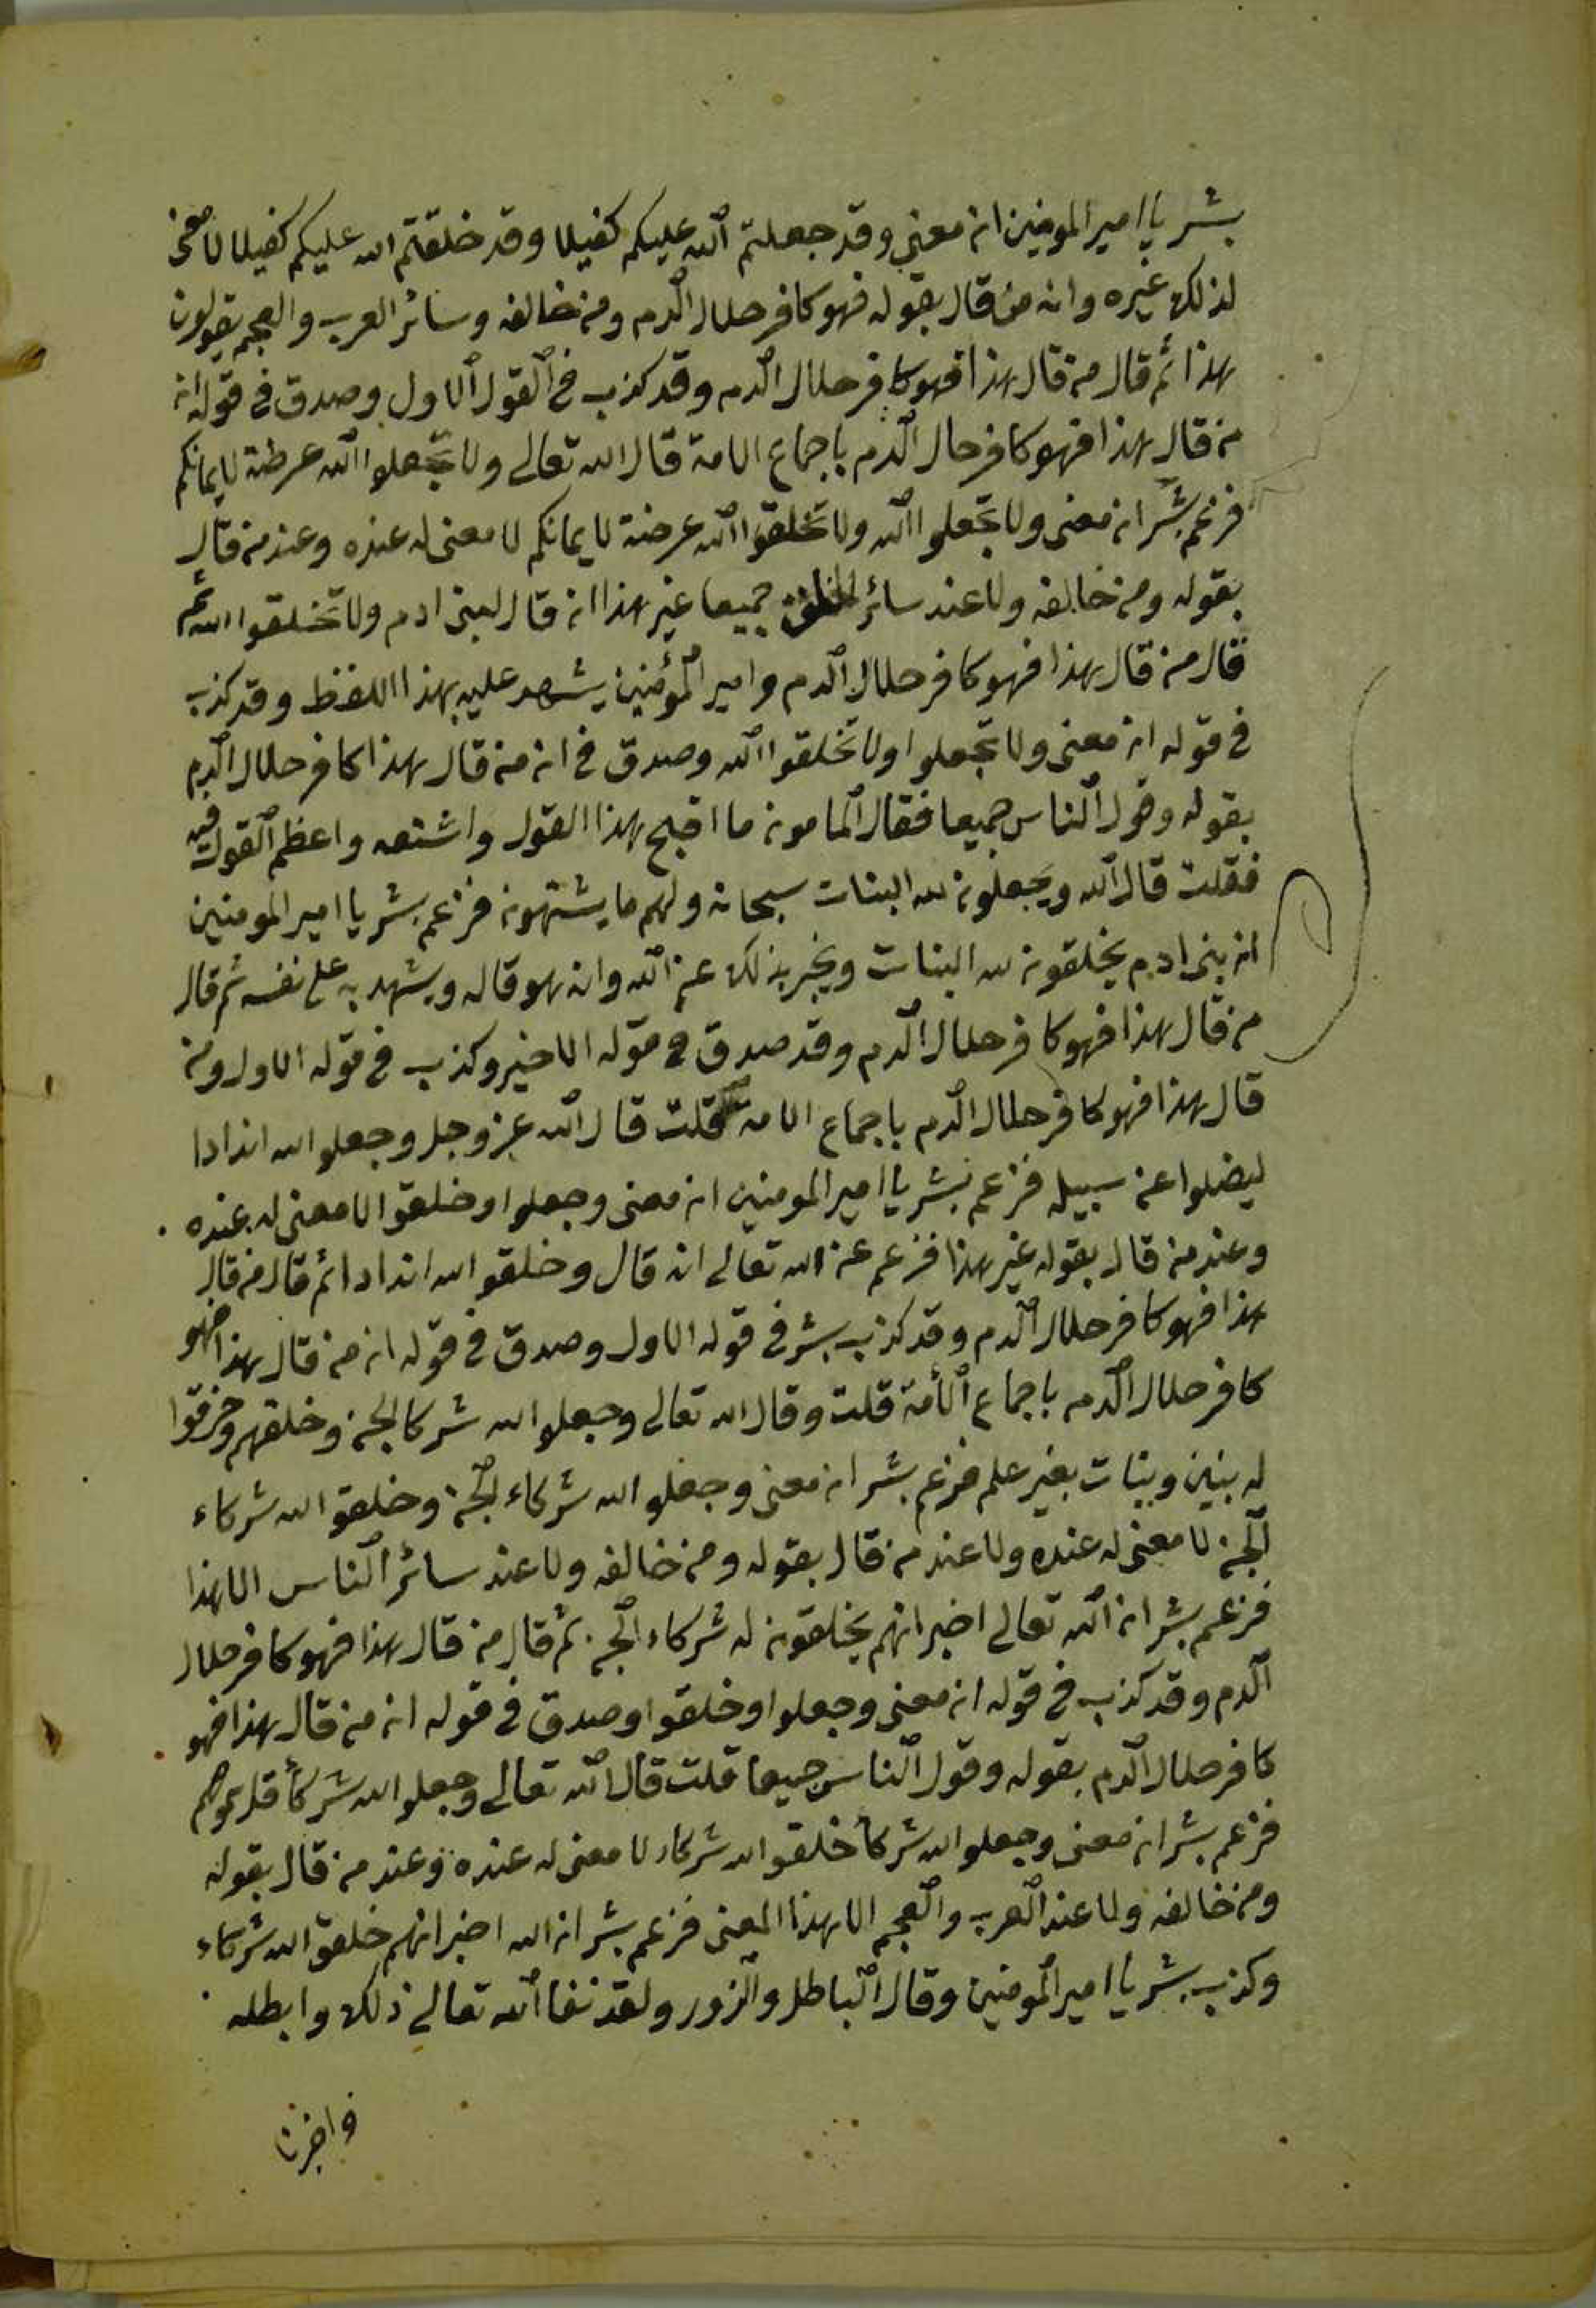 بشر يا امير المومنين ان معنى وقد جعلتم الله عليكم كفيلا وقد خلقتم الله عليكم كفيلا لا معنى
لذلك غيره وانه من قال بقوله فهو كافر حلال الدم ومن خالفه وسائر العرب والعجم يقولون
بهذا ثم قال من قال بهذا فهو كافر حلال الدم وقد كذب في القول الاول وصدق في قوله ان
من قال بهذا فهو كافر حلال الدم باجماع الامة قال الله تعالى ولا تجعلوا الله عرضة لايمانكم
فزعم بشر ان معنى ولا تجعلوا الله ولا تخلقوا الله عرضة لايمانكم لا معنى له عنده وعند من قال
بقوله ومن خالفه ولا عند سائر الخلق جميعا غير هذا انه قال لبني ادم ولا تخلقوا الله ثم
قال من قال بهذا فهو كافر حلال الدم وامير المؤمنين يشهد عليه بهذا اللفظ وقد كذب
في قوله ان معنى ولا تجعلوا ولا تخلقوا الله وصدق في انه من قال بهذا كافر حلال الدم
بقوله وقول الناس جميعا فقال المامون ما اقبح هذا القول واشنعه واعظم القول فيه
فقلت قال الله ويجعلون لله البنات سبحانه ولهم ما يشتهون فزعم بشر يا امير المومنين
ان بني ادم يخلقون لله البنات ويخبر بذلك عن الله وانه هو قاله ويشهد به على نفسه ثم قال
من قال بهذا فهو كافر حلال الدم وقد صدق في قوله الاخير وكذب في قوله الاول ومن
قال بهذا فهو كافر حلال الدم باجماع الامة قلت قال الله عز وجل وجعلوا لله اندادا
ليضلوا عن سبيله فزعم بشر يا امير المومنين ان معنى وجعلوا وخلقوا لا معنى له عنده
وعند من قال بقوله غير هذا فزعم عن الله تعالى انه قال وخلقوا لله اندادا ثم قال من قال
بهذا فهو كافر حلال الدم وقد كذب بشر في قوله الاول وصدق في قوله ان من قال بهذا فهو
كافر حلال الدم باجماع الأمة قلت وقال الله تعالى وجعلوا لله شركا الجن وخلقهم وخرقوا
له بنين وبنات بغير علم فزعم بشر ان معنى وجعلوا لله شركاء الجن وخلقوا لله شركاء
الجن لا معنى له عنده ولا عند من قال بقوله ومن خالفه ولا عند سائر الناس الا هذا
فزعم بشر ان الله تعالى اخبر انهم يخلقون له شركاء الجن ثم قال من قال بهذا فهو كافر حلال
الدم وقد كذب في قوله ان معنى وجعلوا وخلقوا وصدق في قوله انه من قال بهذا فهو
كافر حلال الدم بقوله وقول الناس جميعا قلت قال الله تعالى وجعلوا لله شركأ قل سموهم
فزعم بشر ان معنى وجعلوا لله شركأ خلقوا لله شركاء لا معنى له عنده وعند من قال بقوله
ومن خالفه ولا عند العرب والعجم الا هذا المعنى فزعم بشر ان الله اخبر انهم خلقوا لله شركاء
وكذب بشر يا امير المومنين وقال الباطل والزور ولقد نفا الله تعالى ذلك وابطله
واخبرنا